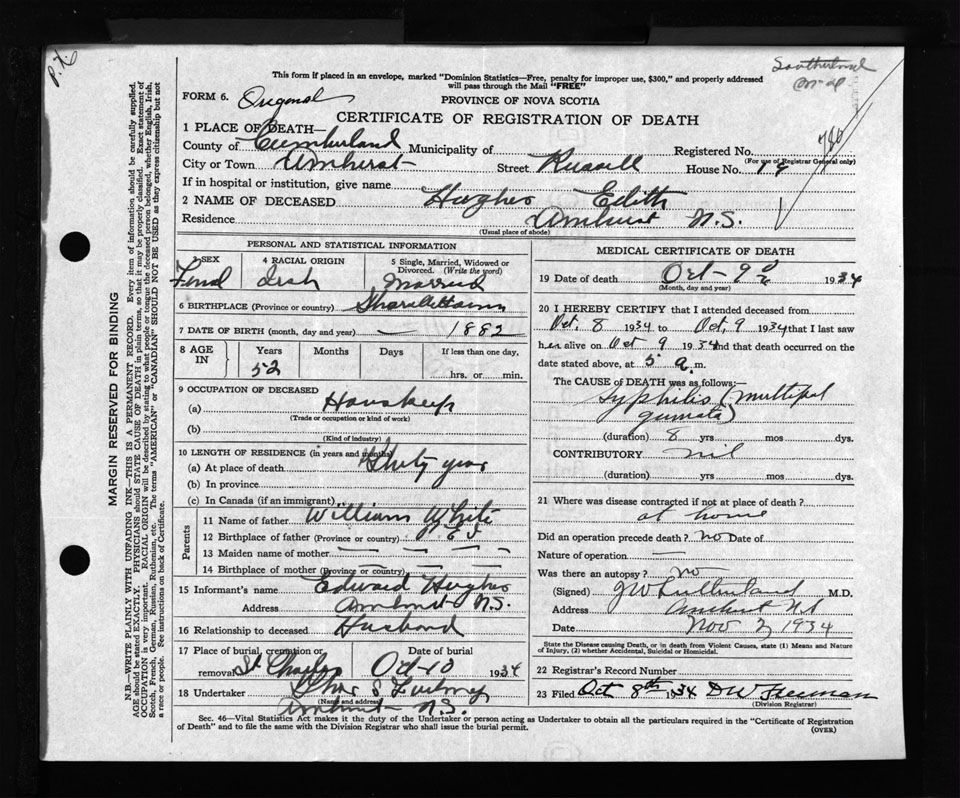 P.X.
Southerland
This form if placed in an envelope, marked "Dominion Statistics—Free, penalty for improper use, $300," and properly addressed
will pass through the Mail "FREE"
FORM 6. Original
PROVINCE OF NOVA SCOTIA
CERTIFICATE OF REGISTRATION OF DEATH
1 PLACE OF DEATH—
County of Cumberland Municipality of Registered No.
(For use of Registrar General only)
City or Town Amherst Street Russell House No. 19
If in hospital or institution, give name
2 NAME OF DECEASED Hughes Edith
Residence Amherst N.S.
(Usual place of abode)
PERSONAL AND STATISTICAL INFORMATION
3 SEX 4 RACIAL ORIGIN 5 Single, Married, Widowed or
Divorced. (Write the word)
Femal Irish Married
6 BIRTHPLACE (Province or country)
7 DATE OF BIRTH (month, day and year) — 1882
8 AGE IN Years Months Days If less than one day,
52 hrs. or min.
9 OCCUPATION OF DECEASED
(a) Houskeep
(Trade or occupation or kind of work)
(b)
(Kind of industry)
10 LENGTH OF RESIDENCE (in years and months)
(a) At place of death Thirty years
(b) In province
(c) In Canada (if an immigrant)
Parents
11 Name of father William White
12 Birthplace of father (Province or country) P.E.I
13 Maiden name of mother — — — —
14 Birthplace of mother (Province or country) — — —
15 Informant's name Edward Hughes
Address Amherst N.S.
16 Relationship to deceased Husband
17 Place of burial, cremation or Date of burial
removal St Charles Oct 10 1934
18 Undertaker Chas S
(Name and address)
Amherst N.S.
MEDICAL CERTIFICATE OF DEATH
19 Date of death Oct - 9 1934
(Month, day and year)
20 I HEREBY CERTIFY that I attended deceased from
Oct. 8 1934 to Oct, 9 1934 that I last saw
her alive on Oct 9 1934 and that death occurred on the
date stated above, at 5 a.m.
The CAUSE of DEATH was as follows:—
Syphilis (multipal
gumata)
(duration) 8 yrs mos dys.
CONTRIBUTORY nil
(duration) yrs mos dys.
21 Where was disease contracted if not at place of death?
at home
Did an operation precede death? no Date of
Nature of operation —
Was there an autopsy? no
(Signed) JW Sutherland M.D.
Address Amherst N.S
Date Nov 2, 1934
State the Disease causing Death, or in death from Violent Causes, state (1) Means and Nature
of Injury, (2) whether Accidental, Suicidal or Homicidal.
22 Registrar's Record Number
23 Filed Oct 8th 1934 DW Freeman
(Division Registrar)
Sec. 46—Vital Statistics Act makes it the duty of the Undertaker or person acting as Undertaker to obtain all the particulars required in the "Certificate of Registration
of Death" and to file the same with the Division Registrar who shall issue the burial permit. (OVER)
MARGIN RESERVED FOR BINDING
N.B.—WRITE PLAINLY WITH UNFADING INK—THIS IS A PERMANENT RECORD. Every item of information should be carefully supplied.
AGE should be stated EXACTLY. PHYSICIANS should STATE CAUSE OF DEATH in plain terms, so that it may be properly classified. Exact statement of
OCCUPATION is very important. RACIAL ORIGIN will be described by stating to what people or tongue the deceased person belonged, whether English, Irish,
Scotch, French, German, Russian, Ruthenian, etc. The terms "AMERICAN" or "CANADIAN" SHOULD NOT BE USED as they express citizenship but not
a race or people. See instructions on back of Certificate.